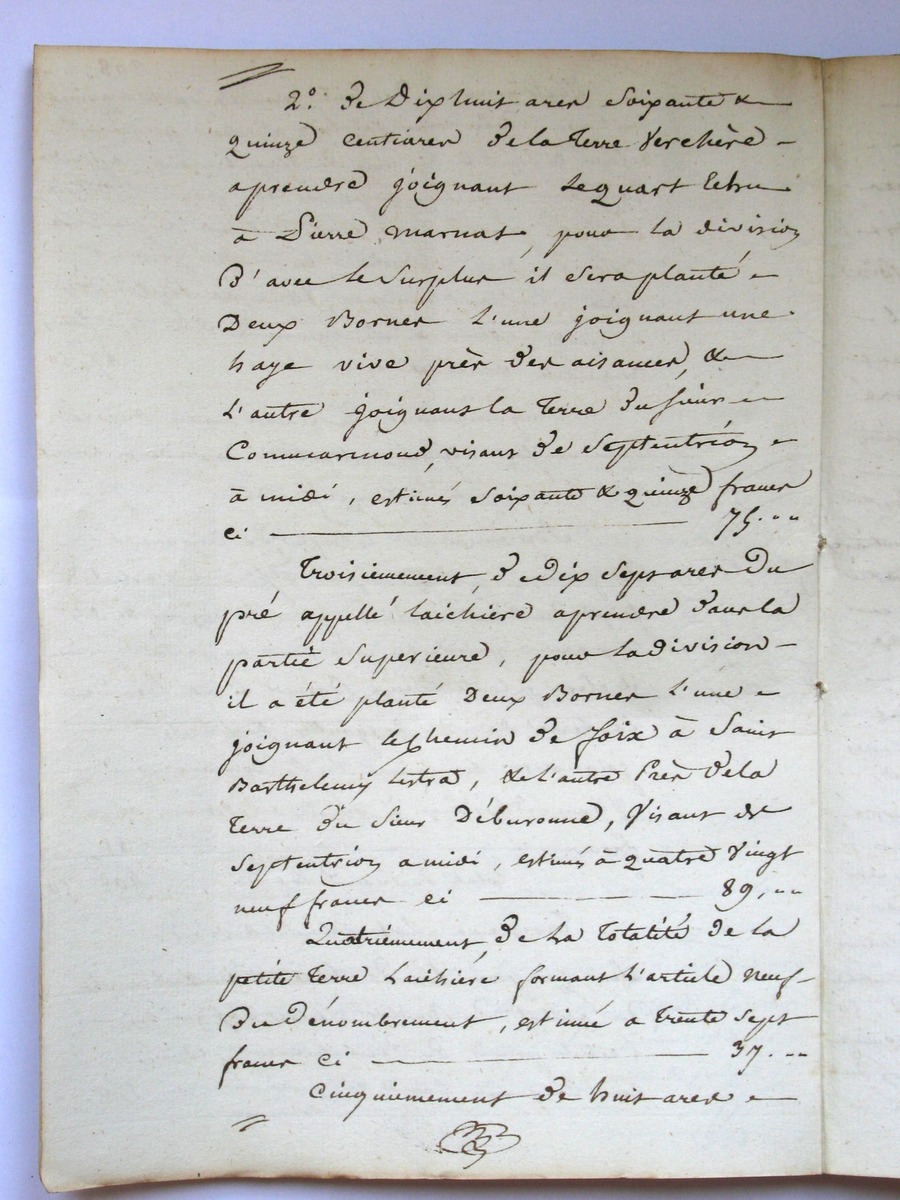 2.° de Dix huit ares soixante &
quinze centiares de la Terre Verchère
a prendre joignant le quart Echu
à Pierre Marnat, pour la division
D'avec le Surplus il sera planté
Deux Bornes l'une joignant une
haye vive près des aisances, &
L'autre joignant la Terre du sieur
Commarmond, visant de Septentrion
à midi, estimés soixante & quinze francs
ci 75. " "
Troisiemement, de dix Sept ares Du
pré appellé Laichière a prendre dans la
partie Superieure, pour la division
il a été planté Deux Bornes l'une
joignant le Chemin de foix à Saint
Barthelemy Lestra, & L'autre Près de la
Terre du Sieur Déburonne, Visant de
Septentrion a midi, estimés à quatre Vingt
neuf francs ci 89. " "
Quatriémement, de La Totalité de la
petite Terre Laichiére formant L'article neuf
Du Dénombrement, estimée a Trente Sept
francs ci 37. " "
Cinquiemement de huit ares